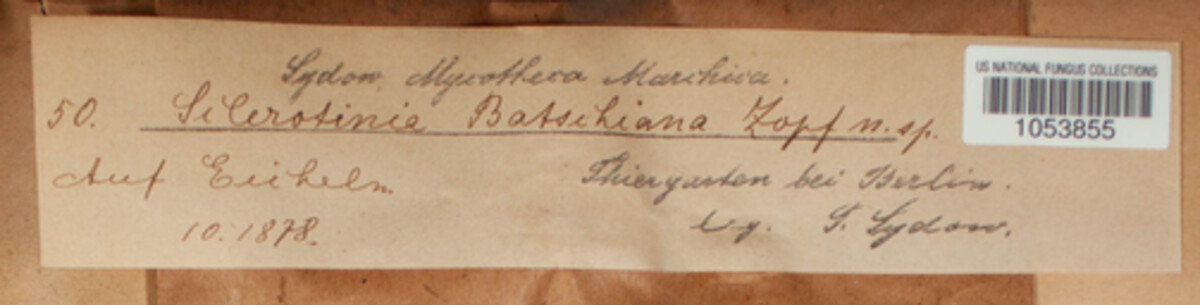 Sydow, Mycotheca Marchica.
50. Sclerotinia Batschiana Zopf n. sp.
Auf Eicheln.
10. 1878.
Thiergarten bei Berlin.
leg. P. Sydow.
US NATIONAL FUNGUS COLLECTIONS
1053855